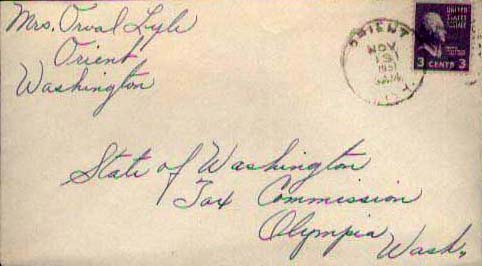 Mrs. Orval Lyle
Orient
Washington
ORIENT
NOV
13
1951
WASH.
UNITED
STATES
3 CENTS 3
State of Washington
Tax Commission
Olympia
Wash.